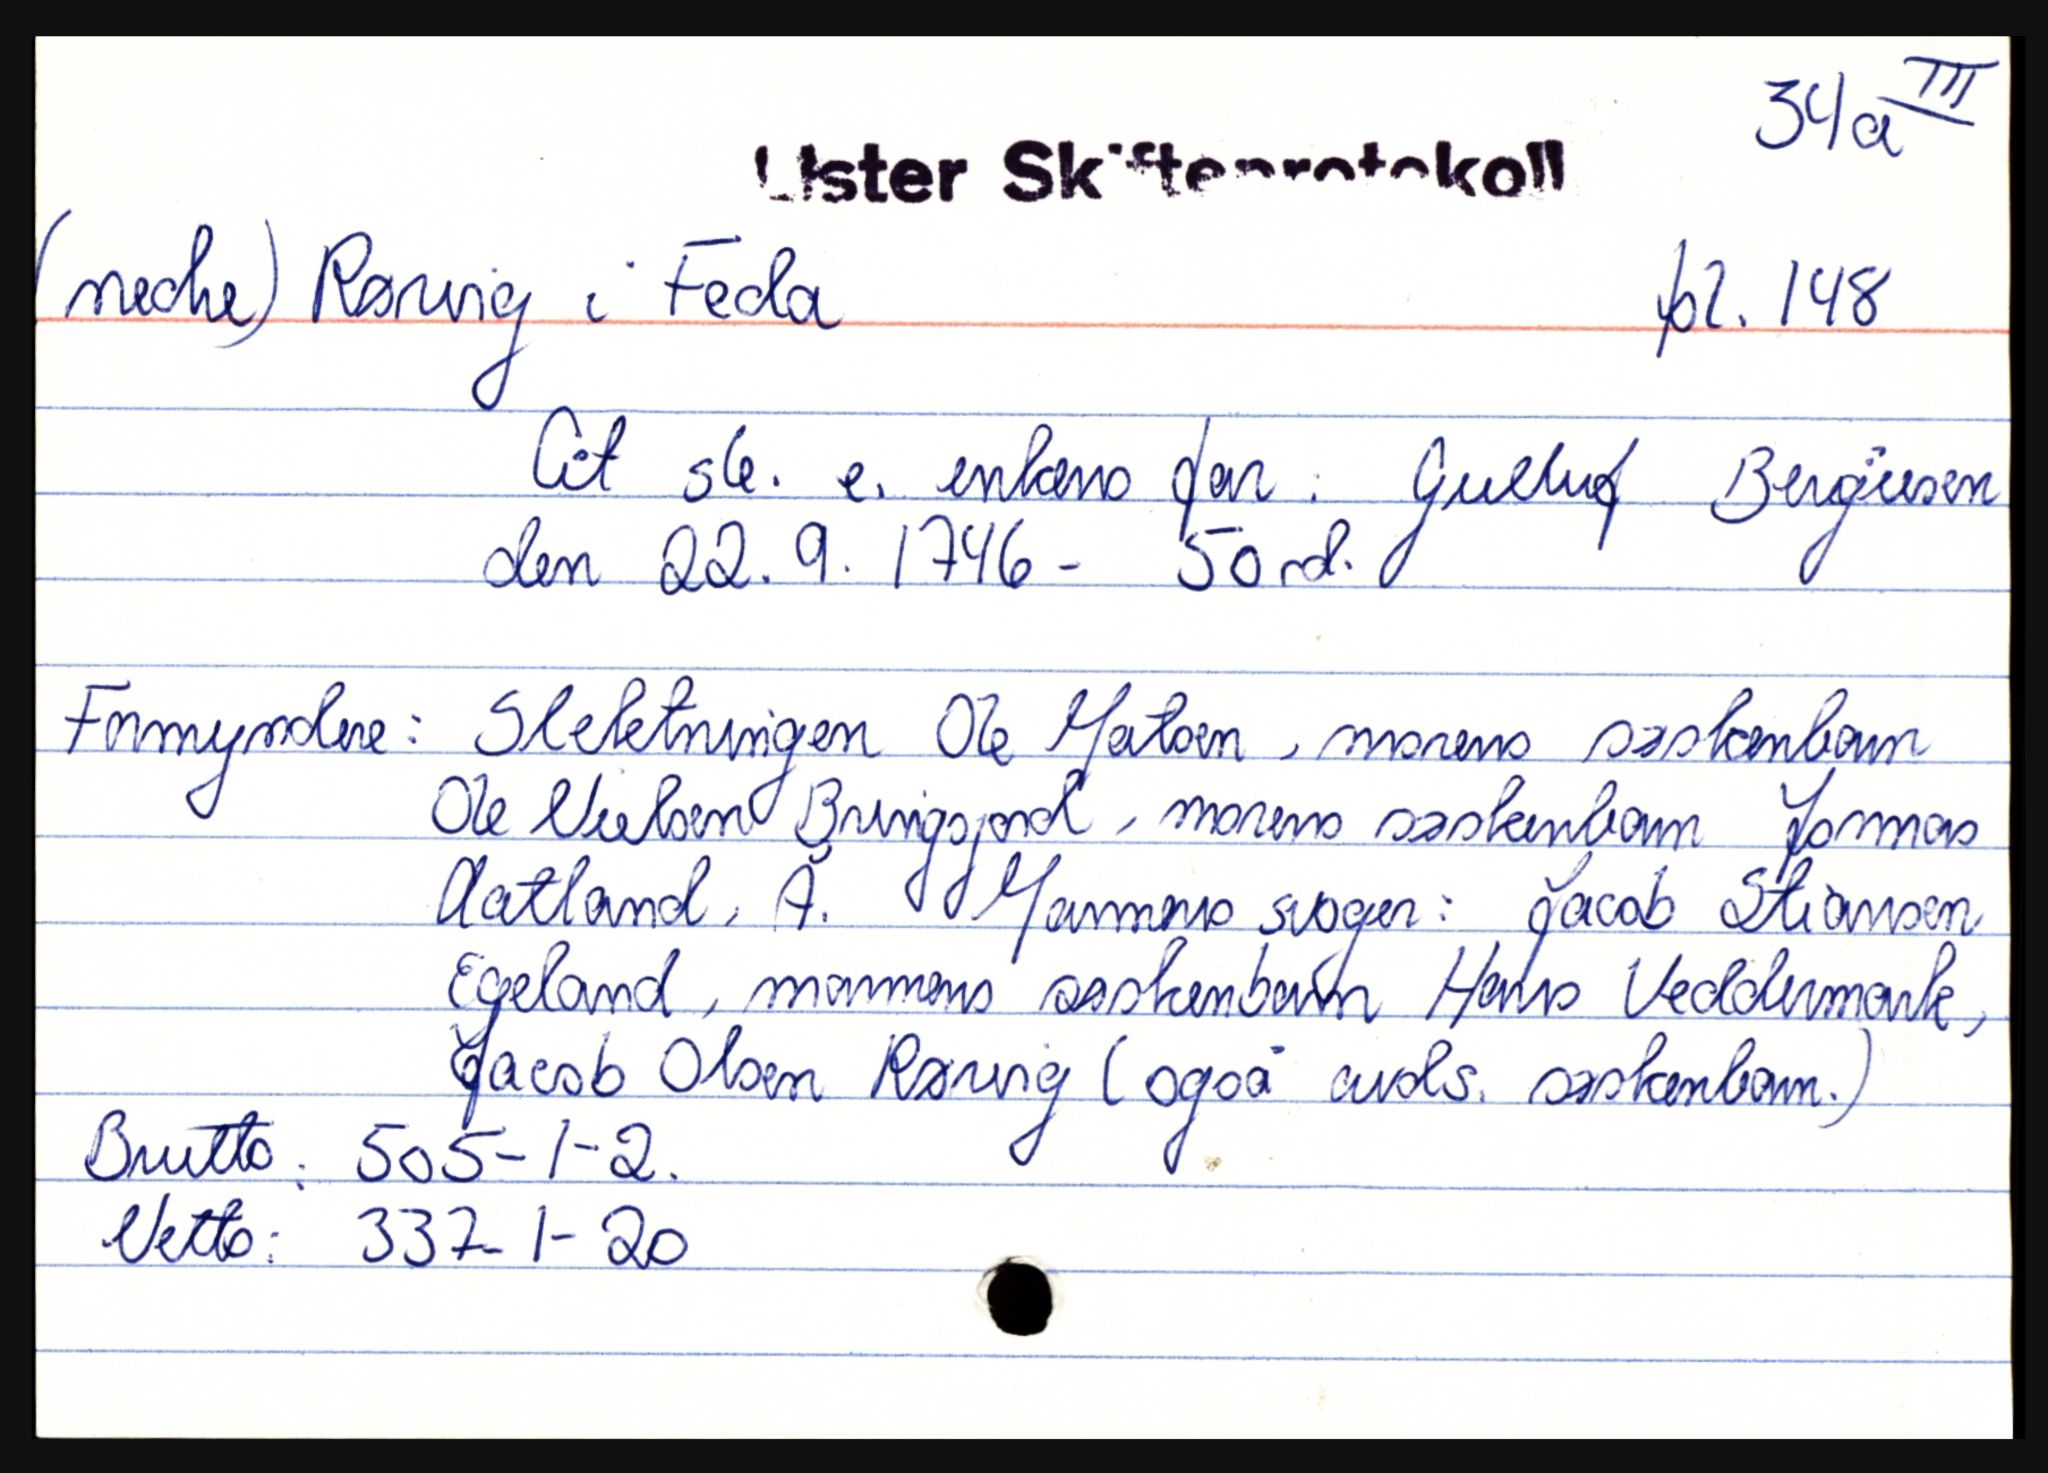 34a III
Lister Skifteprotokoll
(nedre) Rørvig i Feda pl. 148
Cit sk. e. enkens far: Gulluf Bergiusen
den 22. 9. 1746 - 50 rd.
Formyndere: Slektningen Ole Matsen, morens søskenbarn
Ole Nielsen Bringsjord, morens søskenbarn Jonnas
Aatland, Å. Mannens svoger: Jacob Stiansen
Egeland, mannens søskenbarn Hans Veddermark,
Jacob Olsen Rørvig (også avds. søskenbarn.)
Brutto: 505-1-2.
Netto: 337-1-20